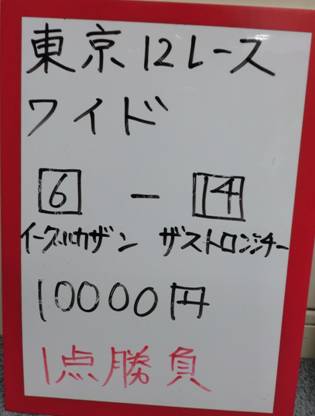 東京12レース
ワイド
6 - 14
イーグルカザン ザストロンジャー
10000円
1点勝負